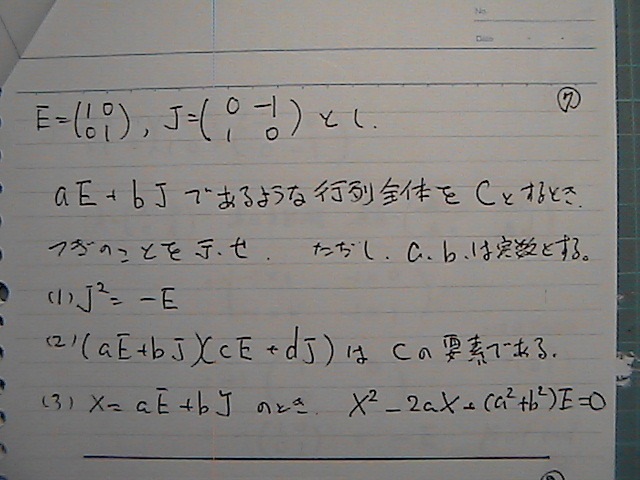 No.
Date
⑦
E=(1 0 0 1), J=(0 -1 1 0) とし.
aE+bJ であるような行列全体を Cとするとき.
つぎのことを示せ. ただし. a.b.は実数とする。
(1) J²=-E
(2) (aE+bJ)(cE+dJ) は Cの要素である.
(3) X=aE+bJ のとき. X²-2aX+(a²+b²)E=0